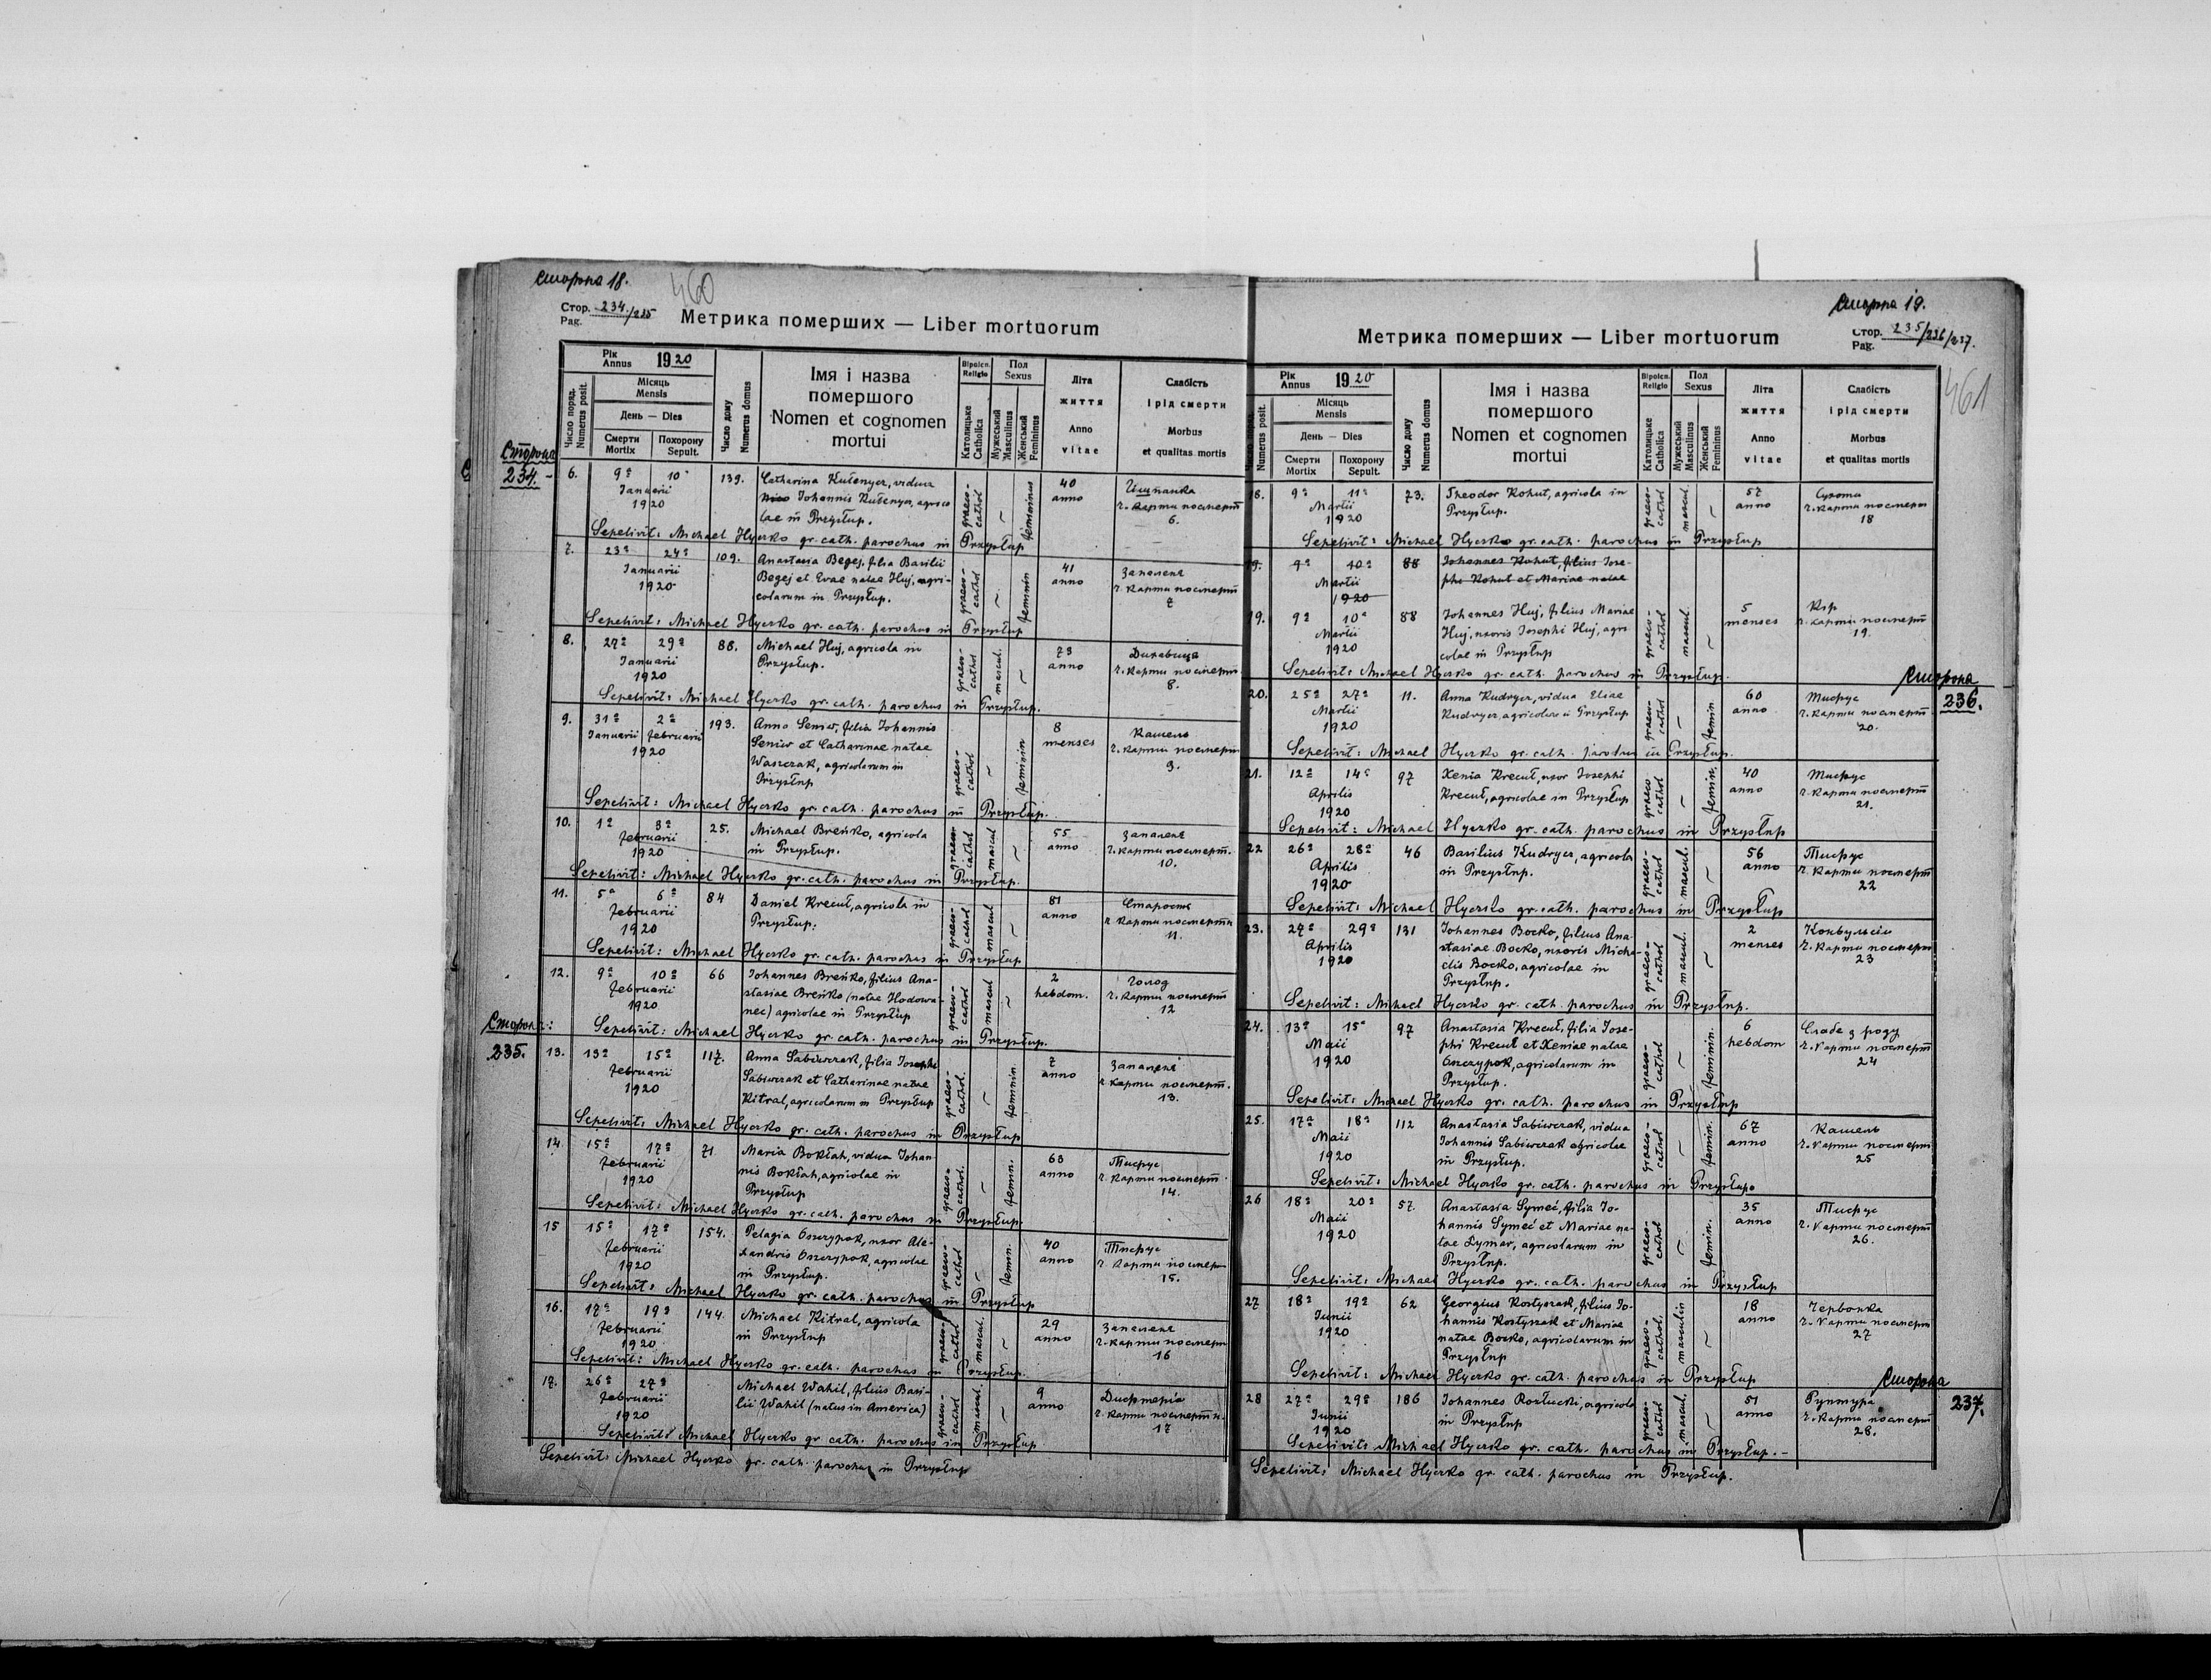 Сторона 18.
460
Стор. 234/235
Pag.
Метрика померших — Liber mortuorum
Рік
Annus 1920
Місяць
Mensis
День — Dies
Число поряд.
Numerus posit.
Смерти
Mortix
Похорону
Sepult.
Число дому
Numerus domus
Імя і назва
помершого
Nomen et cognomen
mortui
Віроісп.
Religio
Католицьке
Catholica
Пол
Sexus
Мужеський
Masculinus
Женський
Femininus
Літа
життя
Anno
vitae
Слабість
і рід смерти
Morbus
et qualitas mortis
Сторона
234.-
6. 9ª 10ª 139. Catharina Kuśenyer, vidua 40
Januarii Johannis Kuśenyer, agrico anno
1920 lae in Przysłup. graeco-cathol ~ femininus
Іспанка
ч. карти посмерт
6.
Sepelivit: Michael Hyczko gr. cath. parochus in Przysłup
7. 23ª 24ª 109. Anastasia Begej, filia Basilii 41
Januarii Begej et Evae natae Huj, agri- anno
1920 colarum in Przysłup. graeco-cathol ~ feminin
Запаленє
ч. карти посмерт
7
Sepelivit: Michael Hyczko gr. cath. parochus in Przysłup
8. 27ª 29ª 88. Michael Huj, agricola in 73
Januarii Przysłup. anno
1920 graeco-cathol mascul. ~
Дихавиця
ч. карти посмерт
8.
Sepelivit: Michael Hyczko gr. cath. parochus in Przysłup.
9. 31ª 2ª 193. Anna Seniw, filia Johannis 8
Januarii Februarii Seniw et Catharinae natae menses
1920 Waszczak, agricolarum in
Przysłup graeco-cathol ~ feminin
Кашель
ч. карти посмерт
9.
Sepelivit: Michael Hyczko gr. cath. parochus in Przysłup.
10. 1ª 3ª 25. Michael Breńko, agricola 55
Februarii in Przysłup. anno
1920 graeco-cathol mascul ~
Запаленє
ч. карти посмерт.
10.
Sepelivit: Michael Hyczko gr. cath. parochus in Przysłup.
11. 5ª 6ª 84 Daniel Krecuł, agricola in 81
Februarii Przysłup. anno
1920 graeco-cathol mascul ~
Старость
ч. карти посмертн
11.
Sepelivit: Michael Hyczko gr. cath. parochus in Przysłup.
12. 9ª 10ª 66 Johannes Breńko, filius Ana- 2
Februarii stasiae Breńko (natae Hodowa- hebdom.
1920 nec) agricolae in Przysłup graeco-cathol mascul ~
Голод
ч. карти посмерт
12
Sepelivit: Michael Hyczko gr. cath. parochus in Przysłup.
Сторона:
235.
13. 13ª 15ª 117. Anna Sabiwczak, filia Josephi 7
Februarii Sabiwczak et Catharinae natae anno
1920 Kitral, agricolarum in Przysłup graeco-cathol. ~ feminin.
Запаленє
ч. карти посмерт.
13.
Sepelivit: Michael Hyczko gr. cath. parochus in Przysłup
14. 15ª 17ª 71 Maria Bokłah, vidua Johan- 63
Februarii nis Bokłah, agricolae in anno
1920 Przysłup graeco-cathol. ~ femin.
Тифус
ч. карти посмерт.
14.
Sepelivit: Michael Hyczko gr. cath. parochus in Przysłup.
15 15ª 17ª 154. Pelagia Oszczypok, uxor Ale- 40
Februarii xandris Oszczypok, agricolae anno
1920 in Przysłup. graeco-cathol ~ femin.
Тифус
ч. карти посмерт
15.
Sepelivit: Michael Hyczko gr. cath. parochus in Przysłup
16. 17ª 19ª 144. Michael Kitral, agricola 29
Februarii in Przysłup anno
1920 graeco-cathol mascul. ~
Запаленє
ч. карти посмерт
16
Sepelivit: Michael Hyczko gr. cath. parochus in Przysłup.
17. 26ª 27ª Michael Wahil, filius Basi- 9
Februarii lii Wahil (natus in America) anno
1920 graeco-cathol mascul. ~
Дифтерія
ч. карти посмертн.
17
Sepelivit: Michael Hyczko gr. cath. parochus in Przysłup
Sepelivit: Michael Hyczko gr. cath. parochus in Przysłup
Сторона 19.
Стор. 235/236/237.
Pag.
461
Метрика померших — Liber mortuorum
Рік
Annus 1920
Місяць
Mensis
День — Dies
Numerus posit.
Смерти
Mortix
Похорону
Sepult.
Число дому
Numerus domus
Імя і назва
помершого
Nomen et cognomen
mortui
Віроісп.
Religio
Католицьке
Catholica
Пол
Sexus
Мужеський
Masculinus
Женський
Femininus
Літа
життя
Anno
vitae
Слабість
і рід смерти
Morbus
et qualitas mortis
18. 9ª 11ª 73. Theodor Kohut, agricola in 57
Martii Przysłup. anno
1920 graeco-cathol mascul. ~
Сухоти
ч. карти посмерт
18
Sepelivit: Michael Hyczko gr. cath. parochus in Przysłup
19. 9ª 10ª 88 Johannes Kohut, filius Jose-
Martii phi Kohut et Mariae natae
1920
19. 9ª 10ª 88 Johannes Huj, filius Mariae 5
Martii Huj, uxoris Josephi Huj, agri- menses
1920 colae in Przysłup graeco-cathol mascul. ~
Кір
ч. карти посмерт
19.
Sepelivit: Michael Hyczko gr. cath. parochus in Przysłup.
Сторона
236.
20. 25ª 27ª 11. Anna Kudryez, vidua Eliae 60
Martii Kudryez, agricolae in Przysłup anno
1920 graeco-cathol ~ femin.
Тифус
ч. карти посмерт
20.
Sepelivit: Michael Hyczko gr. cath. parochus in Przysłup.
21. 12ª 14ª 97 Xenia Krecuł, uxor Josephi 40
Aprilis Krecuł, agricolae in Przysłup anno
1920 graeco cathol ~ femin.
Тифус
ч. карти посмерт
21.
Sepelivit: Michael Hyczko gr. cath. parochus in Przysłup
22 26ª 28ª 46 Basilius Kudryez, agricola 56
Aprilis in Przysłup. anno
1920 graeco-cathol mascul. ~
Тифус
ч. карти посмерт
22
Sepelivit: Michael Hyczko gr. cath. parochus in Przysłup
23. 27ª 29ª 131 Johannes Bocko, filius Ana- 2
Aprilis stasiae Bocko, uxoris Micha- menses
1920 elis Bocko, agricolae in
Przysłup. graeco-cathol mascul. ~
Конвульсії
ч. карти посмерт
23
Sepelivit: Michael Hyczko gr. cath. parochus in Przysłup.
24. 13ª 15ª 97 Anastasia Krecuł, filia Jose- 6
Maii phi Krecuł et Xeniae natae hebdom
1920 Oszczypok, agricolarum in
Przysłup. graeco-cathol ~ feminin.
Слабе з роду
ч. карти посмерт
24
Sepelivit: Michael Hyczko gr. cath. parochus in Przysłup
25. 17ª 18ª 112 Anastasia Sabiwczak, vidua 67
Maii Johannis Sabiwczak agricolae anno
1920 in Przysłup. graeco-cathol ~ femin.
Кашель
ч. карти посмерт
25
Sepelivit: Michael Hyczko gr. cath. parochus in Przysłup.
26 18ª 20ª 57. Anastasia Symeć, filia Jo- 35
Maii hannis Symeć et Mariae na- anno
1920 tae Dymar, agricolarum in
Przysłup. graeco-cathol ~ femin.
Тифус
ч. карти посмерт
26.
Sepelivit: Michael Hyczko gr. cath. parochus in Przysłup
27 18ª 19ª 62 Georgius Kostyszak, filius Jo- 18
Junii hannis Kostyszak et Mariae anno
1920 natae Bocko, agricolarum in
Przysłup graeco-cathol. masculin ~
Червонка
ч. карти посмерт
27
Sepelivit: Michael Hyczko gr. cath. parochus in Przysłup
Сторона
237.
28 27ª 29ª 186 Johannes Rozłucki, agricola 51
Junii in Przysłup anno
1920 graeco-cathol mascul. ~
Руптура
ч. карти посмерт
28.
Sepelivit: Michael Hyczko gr. cath. parochus in Przysłup.-
Sepelivit: Michael Hyczko gr. cath. parochus in Przysłup.